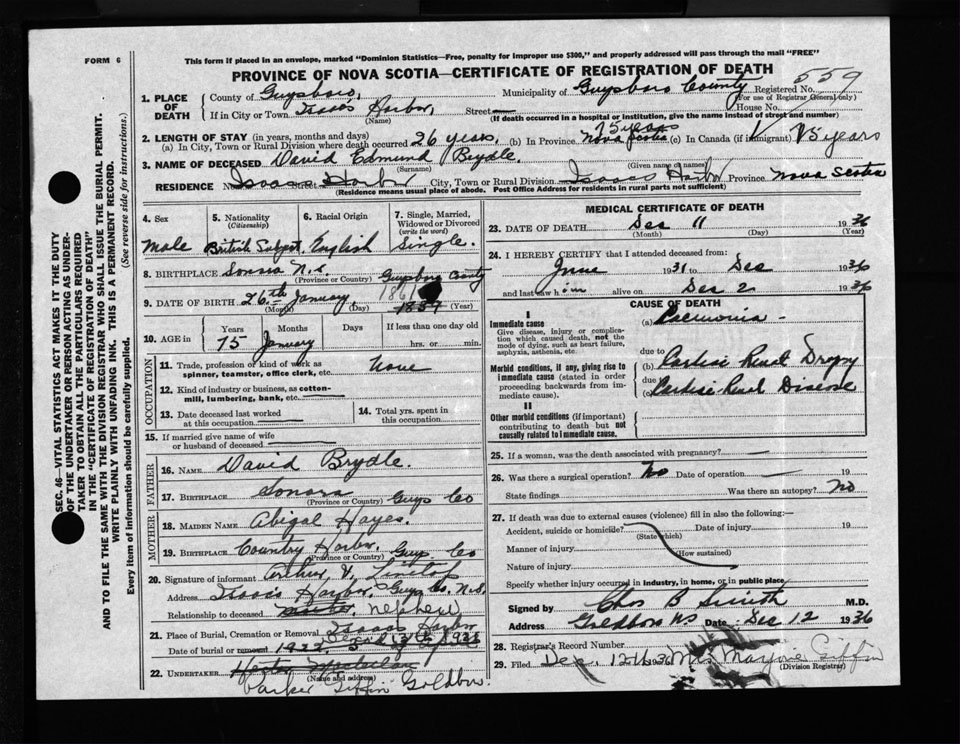 FORM 6
This form if placed in an envelope, marked "Dominion Statistics—Free, penalty for improper use $300," and properly addressed will pass through the mail "FREE"
PROVINCE OF NOVA SCOTIA—CERTIFICATE OF REGISTRATION OF DEATH
559
1. PLACE OF DEATH
County of Guysboro, Municipality of Guysboro County Registered No.
(For use of Registrar General only)
If in City or Town Isaacs Harbor, Street— House No.
(Name) (If death occurred in a hospital or institution, give the name instead of street and number)
2. LENGTH OF STAY (in years, months and days) 75 years
(a) In City, Town or Rural Division where death occurred 26 years. (b) In Province Nova Scotia (c) In Canada (if immigrant) 75 years
3. NAME OF DECEASED David Edmund Brydle.
(Surname) (Given name or names)
RESIDENCE No. Isaacs Street Harbor City, Town or Rural Division Isaacs Harbor Province Nova Scotia
(Residence means usual place of abode. Post Office Address for residents in rural parts not sufficient)
4. Sex
male
5. Nationality
(Citizenship)
British Subject.
6. Racial Origin
English
7. Single, Married,
Widowed or Divorced
(write the word)
Single.
8. BIRTHPLACE Sonora N.S. Guysboro County
(Province or Country)
9. DATE OF BIRTH 26th January, 1861 1837
(Month) (Day) (Year)
10. AGE in
Years Months Days If less than one day old
75 January hrs. or min.
OCCUPATION
11. Trade, profession or kind of work as None
spinner, teamster, office clerk, etc.
12. Kind of industry or business, as cotton-
mill, lumbering, bank, etc.
13. Date deceased last worked
at this occupation
14. Total yrs. spent in
this occupation
15. If married give name of wife
or husband of deceased
FATHER
16. NAME David Brydle.
17. BIRTHPLACE Sonora Guys Co
(Province or Country)
MOTHER
18. MAIDEN NAME Abigal Hayes.
19. BIRTHPLACE Country Harbor. Guys Co
(Province or Country)
20. Signature of informant Arthur V.
Address Isaacs Harbor. Guys Co. N.S.
Relationship to deceased nephew
21. Place of Burial, Cremation or Removal Isaacs Harbor
Date of burial or removal
22. UNDERTAKER
(Name and address)
Parker Giffin Goldboro.
MEDICAL CERTIFICATE OF DEATH
23. DATE OF DEATH Dec 11 1936
(Month) (Day) (Year)
24. I HEREBY CERTIFY that I attended deceased from:
June 1931 to Dec 1936
and last saw him alive on Dec 2 1936
CAUSE OF DEATH
I
Immediate cause
Give disease, injury or complica-
tion which caused death, not the
mode of dying, such as heart failure,
asphyxia, asthenia, etc.
(a) Pneumonia
Morbid conditions, if any, giving rise to
immediate cause (stated in order
proceeding backwards from im-
mediate cause).
due to
(b) Cardiac Renal Dropsy
due to
(c) Cardiac Renal Disease
II
Other morbid conditions (if important)
contributing to death but not
causally related to immediate cause.
25. If a woman, was the death associated with pregnancy?
26. Was there a surgical operation? No Date of operation 19
State findings Was there an autopsy? No
27. If death was due to external causes (violence) fill in also the following:—
Accident, suicide or homicide? Date of injury 19
(State which)
Manner of injury
(How sustained)
Nature of injury
Specify whether injury occurred in industry, in home, or in public place
Signed by Chas B Smith M.D.
Address Goldboro NS Date Dec 12 1936
28. Registrar's Record Number
29. Filed Dec. 12th 1936 Mrs Marjorie Giffin
(Division Registrar)
SEC. 46—VITAL STATISTICS ACT MAKES IT THE DUTY
OF THE UNDERTAKER OR PERSON ACTING AS UNDER-
TAKER TO OBTAIN ALL THE PARTICULARS REQUIRED
IN THE "CERTIFICATE OF REGISTRATION OF DEATH"
AND TO FILE THE SAME WITH THE DIVISION REGISTRAR WHO SHALL ISSUE THE BURIAL PERMIT.
WRITE PLAINLY WITH UNFADING INK. THIS IS A PERMANENT RECORD.
Every item of information should be carefully supplied. (See reverse side for instructions.)